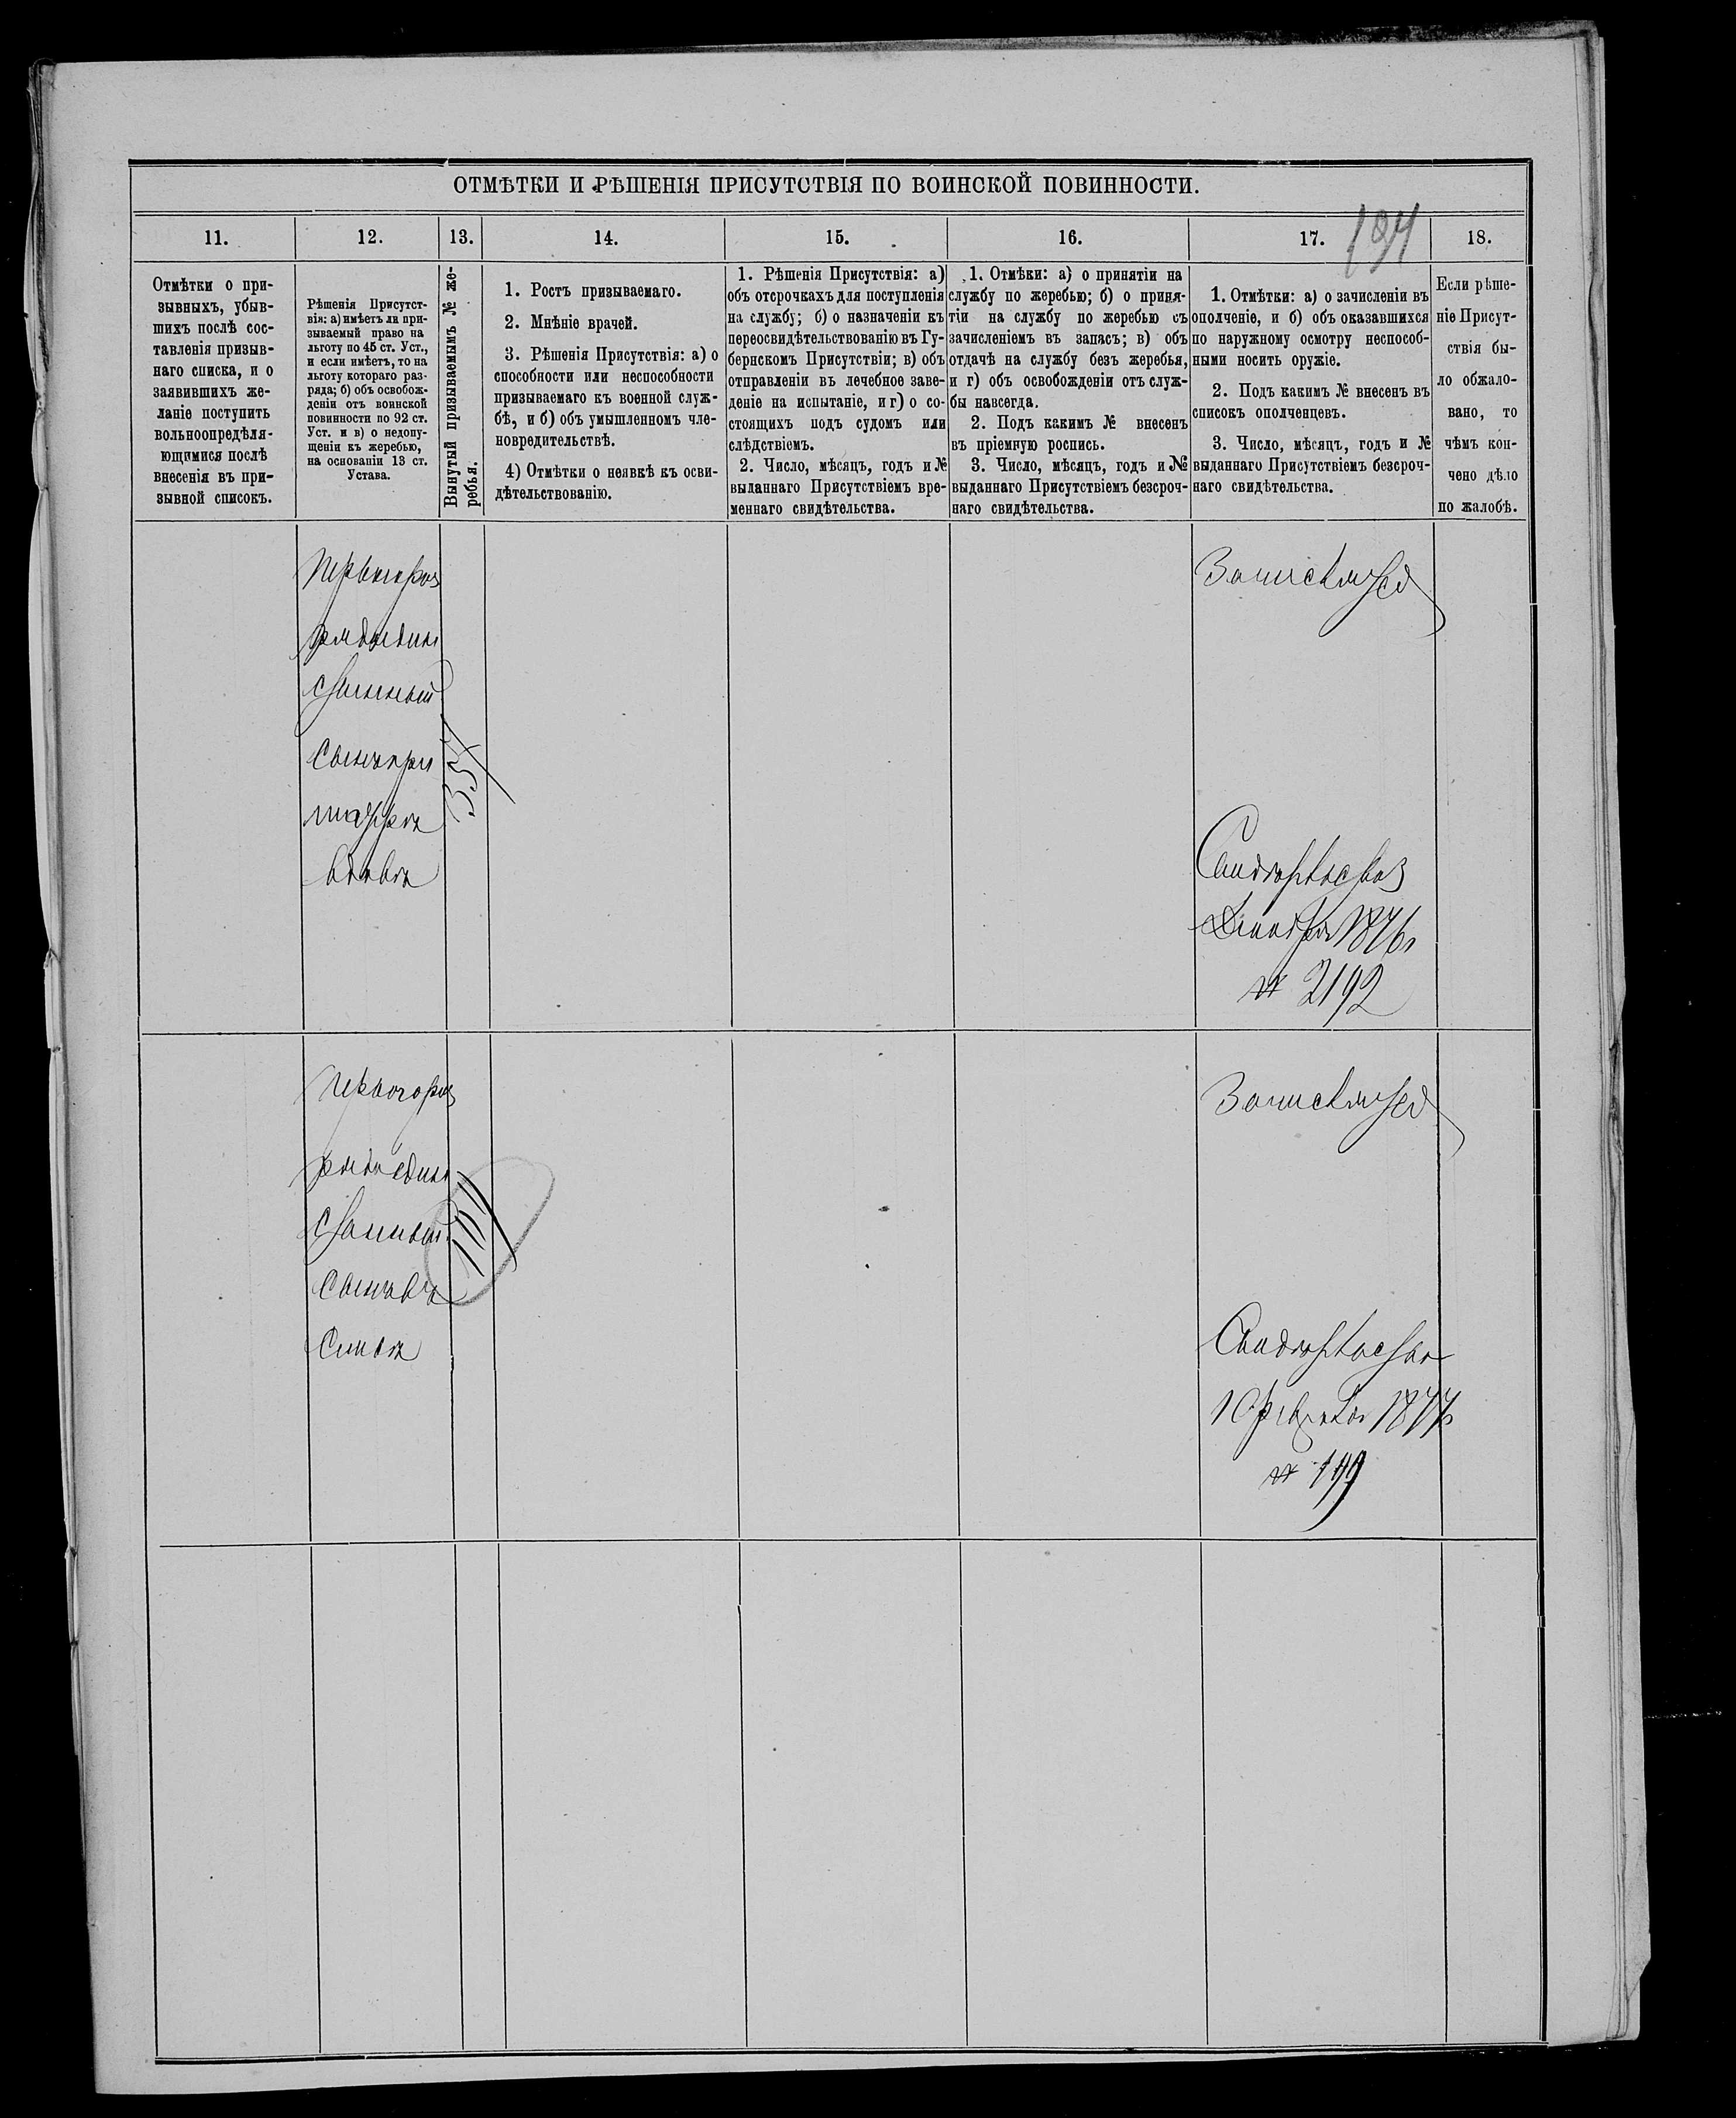 ОТМѢТКИ И РѢШЕНІЯ ПРИСУТСТВІЯ ПО ВОИНСКОЙ ПОВИННОСТИ.
194
11.
12.
13.
14.
15.
16.
17.
18.
Отмѣтки о при-
зывныхъ, убыв-
шихъ послѣ сос-
тавленія призыв-
наго списка, и о
заявившихъ же-
ланіе поступить
вольноопредѣля-
ющимися послѣ
внесенія въ при-
зывной списокъ.
Рѣшенія Присутст-
вія: а) имѣетъ ли при-
зываемый право на
льготу по 45 ст. Уст.,
и если имѣетъ, то на
льготу котораго раз-
ряда; б) объ освобож-
деніи отъ воинской
повинности по 92 ст.
Уст. и в) о недопу-
щеніи къ жеребью,
на основаніи 13 ст.
Устава.
Вынутый призываемымъ № же-
ребья.
1. Ростъ призываемаго.
2. Мнѣніе врачей.
3. Рѣшенія Присутствія: а) о
способности или неспособности
призываемаго къ военной служ-
бѣ, и б) объ умышленномъ чле-
новредительствѣ.
4) Отмѣтки о неявкѣ къ осви-
дѣтельствованію.
1. Рѣшенія Присутствія: а)
объ отсрочкахъ для поступленія
на службу; б) о назначеніи къ
переосвидѣтельствованію въ Гу-
бернскомъ Присутствіи; в) объ
отправленіи въ лечебное заве-
деніе на испытаніе, и г) о со-
стоящихъ подъ судомъ или
слѣдствіемъ.
2. Число, мѣсяцъ, годъ и №
выданнаго Присутствіемъ вре-
меннаго свидѣтельства.
1. Отмѣки: а) о принятіи на
службу по жеребью; б) о приня-
тіи на службу по жеребью съ
зачисленіемъ въ запасъ; в) объ
отдачѣ на службу безъ жеребья,
и г) объ освобожденіи отъ служ-
бы навсегда.
2. Подъ какимъ № внесенъ
въ пріемную роспись.
3. Число, мѣсяцъ, годъ и №
выданнаго Присутствіемъ безсроч-
наго свидѣтельства.
1. Отмѣтки: а) о зачисленіи въ
ополченіе, и б) объ оказавшихся
по наружному осмотру неспособ-
ными носить оружіе.
2. Подъ какимъ № внесенъ въ
списокъ ополченцевъ.
3. Число, мѣсяцъ, годъ и №
выданнаго Присутствіемъ безсроч-
наго свидѣтельства.
Если рѣше-
ніе Присут-
ствія бы-
ло обжало-
вано, то
чѣмъ кон-
чено дѣло
по жалобѣ.
Первагораз
ряда един
ственный
сынъ при
матери
вдовѣ
357
№ 2192
Первагораз
ряда един
ственный
сынъ въ
семьѣ
10 февраля 1877
№ 199